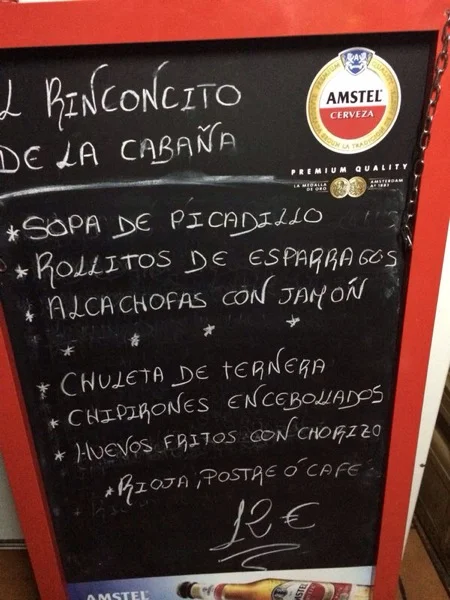 L RINCONCITO
DE LA CABAÑA
AMSTEL
CERVEZA
PREMIUM QUALITY
LA MEDALLA DE ORO
AMSTERDAM Aº 1883
*SOPA DE PICADILLO
*ROLLITOS DE ESPARRAGOS
*ALCACHOFAS CON JAMÓN
* * * *
* CHULETA DE TERNERA
* CHIPIRONES ENCEBOLLADOS
* HUEVOS FRITOS CON CHORIZO
*RIOJA, POSTRE Ó CAFÉ
12 €
AMSTEL